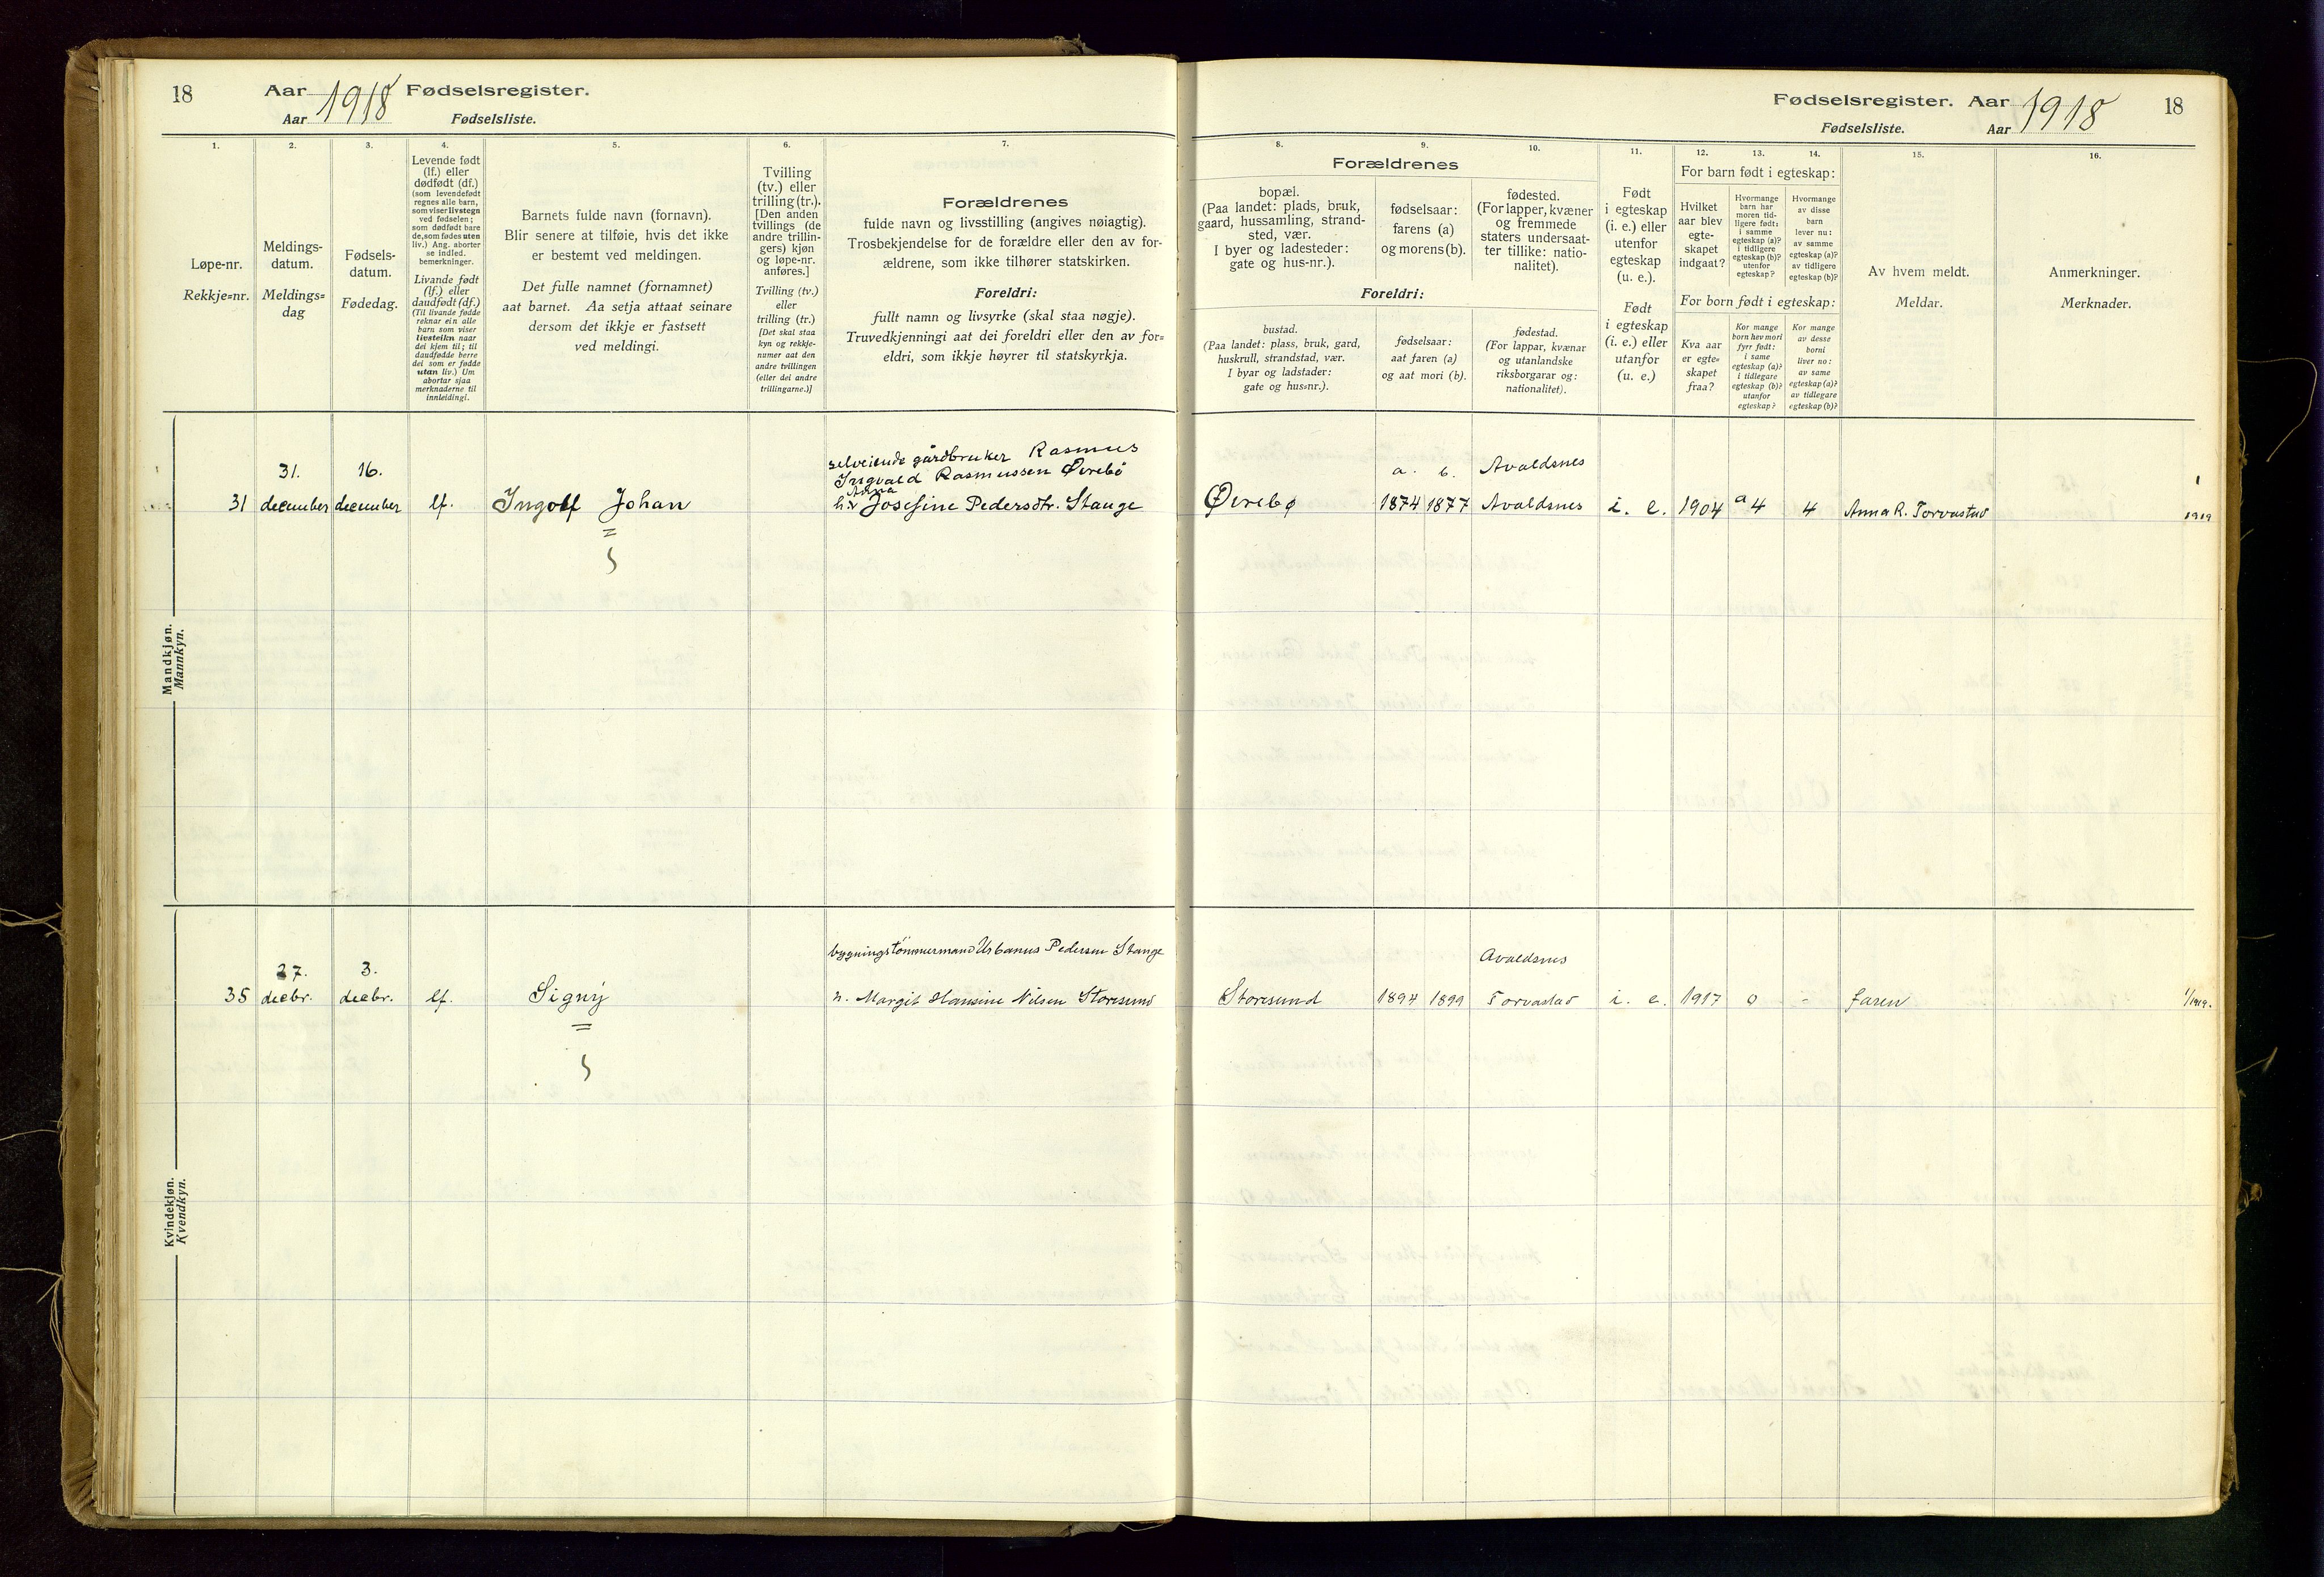 18 Aar 1918 Fødselsregister.
Aar Fødselsliste.
1. 2. 3. 4. 5. 6. 7.
Løpe-nr.
Rekkje=nr.
Meldings-
datum.
Meldings=
dag
Fødsels-
datum.
Fødedag.
Levende født
(lf.) eller
dødfødt (df.)
(som levendefødt
regnes alle barn,
som viser livstegn
ved fødselen;
som dødfødt bare
de, som fødes uten
liv.) Ang. aborter
se indled.
bemerkninger.
Livande født
(lf.) eller
daudfødt (df.)
(Til livande fødde
reknar ein alle
barn som viser
livsteikn naar
dei kjem til; til
daudfødde berre
dei som er fødde
utan liv.) Um
abortar sjaa
merknaderne til
innleidingi.
Barnets fulde navn (fornavn).
Blir senere at tilføie, hvis det ikke
er bestemt ved meldingen.
Det fulle namnet (fornamnet)
aat barnet. Aa setja attaat seinare
dersom det ikkje er fastsett
ved meldingi.
Tvilling
(tv.) eller
trilling (tr.).
[Den anden
tvillings (de
andre trillin-
gers) kjøn
og løpe-nr.
anføres.]
Tvilling (tv.)
eller
trilling (tr.)
[Det skal staa
kyn og rekkje-
numer aat den
andre tvillingen
(eller dei andre
trillingarne.)]
Forældrenes
fulde navn og livsstilling (angives nøiagtig).
Trosbekjendelse for de forældre eller den av for-
ældrene, som ikke tilhører statskirken.
Foreldri:
fullt namn og livsyrke (skal staa nøgje).
Truvedkjenningi aat dei foreldri eller den av for=
eldri, som ikkje høyrer til statskyrkja.
Mandkjøn.
Mannkyn.
31. 16.
31 december december lf. Ingolf Johan
selveiende gårdbruker Rasmus
Ingvald Rasmussen Øvrebø
Anna
h. Josefine Pedersdtr. Stange
Kvindekjøn.
Kvendkyn.
27. 3.
35 decbr. decbr. lf. Signy
bygningstömmermand Urbanus Pedersen Stange
h. Margit Hansine Nilsen Storesund
Fødselsregister. Aar 1918 18
Fødselsliste. Aar
8. 9. 10. 11. 12. 13. 14. 15. 16.
Forældrenes
bopæl.
(Paa landet: plads, bruk,
gaard, hussamling, strand-
sted, vær.
I byer og ladesteder:
gate og hus-nr.).
fødselsaar:
farens (a)
og morens (b).
fødested.
(For lapper, kvæner
og fremmede
staters undersaat-
ter tillike: natio-
nalitet).
Foreldri:
bustad.
(Paa landet: plass, bruk, gard,
huskrull, strandstad, vær.
I byar og ladstader:
gate og hus=nr.).
fødselsaar:
aat faren (a)
og aat mori (b).
fødestad.
(For lappar, kvænar
og utanlandske
riksborgarar og:
nationalitet).
Født
i egteskap
(i. e.) eller
utenfor
egteskap
(u. e.).
Født
i egteskap
(i. e.) eller
utanfor
(u. e.)
For barn født i egteskap:
Hvilket
aar blev
egte-
skapet
indgaat?
Hvormange
barn har
moren tid-
ligere født:
i samme
egteskap (a)?
i tidligere
egteskap (b)?
utenfor
egteskap?
Hvormange
av disse
barn
lever nu:
av samme
egteskap (a)?
av tidligere
egteskap (b)?
For born født i egteskap:
Kva aar
er egte=
skapet
fraa?
Kor mange
born hev mori
fyrr født:
i same
egteskap (a)?
i tidlegare
egteskap (b)?
utanfor
egteskap?
Kor mange
av desse
borni
liver no:
av same
egteskap (a)?
av tidlegare
egteskap (b)?
Av hvem meldt.
Meldar.
Anmerkninger.
Merknader.
a. b. Avaldsnes
Øvrebø 1874 1877 Avaldsnes i. e. 1904 a 4 4 Anna R. Torvastad 1
1919
Avaldsnes
Storesund 1894 1899 Torvastad i. e. 1917 0 - faren 1/1919.